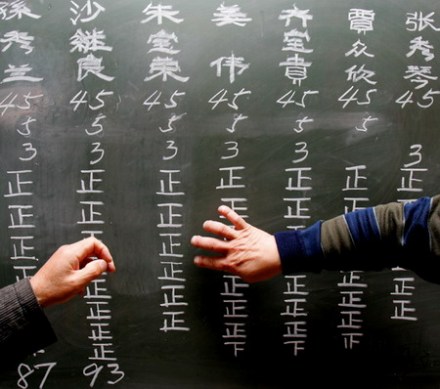 孫秀兰
45
5
3
正
正
正
正
87
沙继良
45
5
3
正
正
正
正
正
正
正
正
93
朱宝荣
45
5
3
正
正
正
正
正
正
姜伟
45
5
3
正
正
正
正
正
齐宝贵
45
5
3
正
正
正
正
正
覃众欣
45
5
3
正
正
正
正
正
张秀琴
45
3
正
正
正